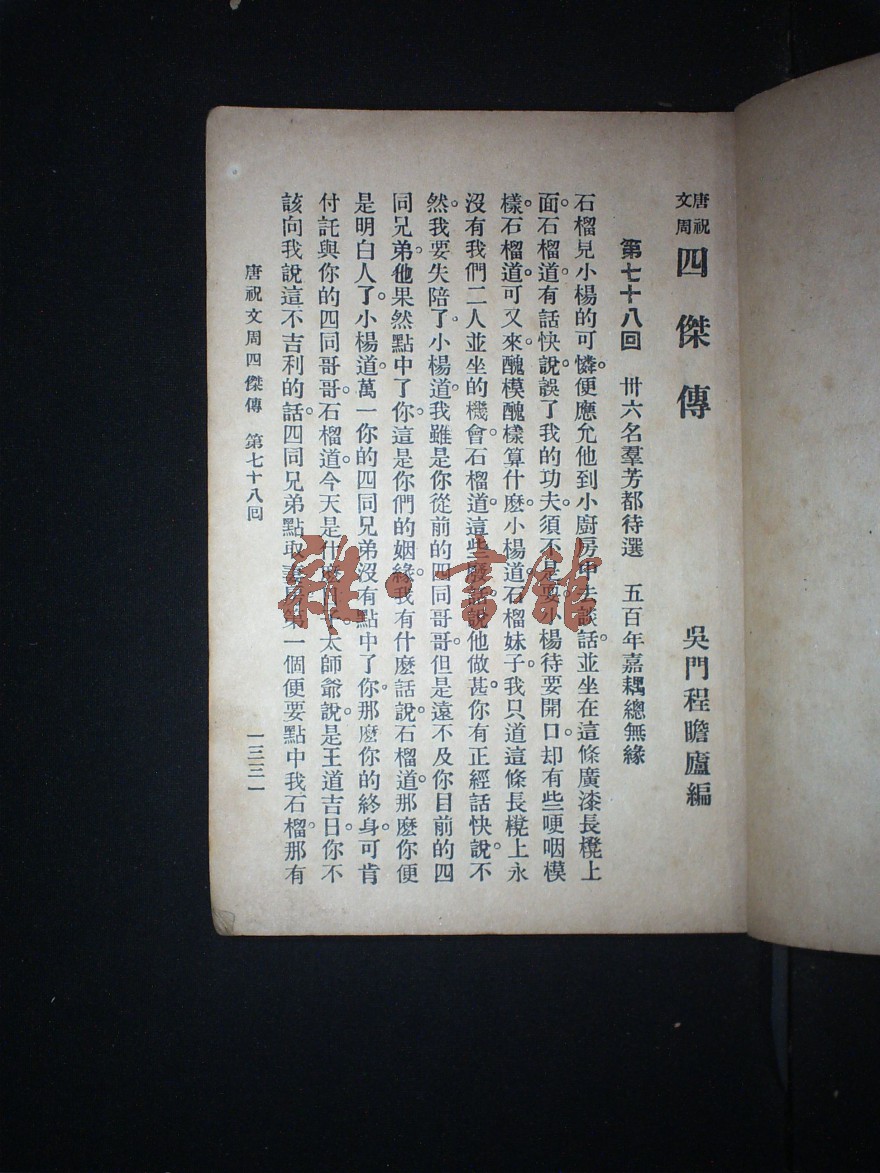 唐祝文周四傑傳
吳門程瞻廬編
第七十八回 卅六名羣芳都待選 五百年嘉耦總無緣
石榴見小楊的可憐。便應允他到小廚房中去談話。並坐在這條廣漆長櫈上
面。石榴道。有話快說。誤了我的功夫。須不是耍。小楊待要開口。却有些哽咽模
樣。石榴道。可又來。醜模醜樣算什麽。小楊道。石榴妹子。我只道這條長櫈上永
沒有我們二人並坐的機會。石榴道。這些廢話說他做甚。你有正經話快說。不
然。我要失陪了。小楊道。我雖是你從前的四同哥哥。但是遠不及你目前的四
同兄弟。他果然點中了你。這是你們的姻緣。我有什麽話說。石榴道。那麽你便
是明白人了。小楊道。萬一你的四同兄弟沒有點中了你。那麽你的終身。可肯
付託與你的四同哥哥。石榴道。今天是什麽 太師爺說。是王道吉日。你不
該向我說這不吉利的話。四同兄弟點取 第一個便要點中我石榴。那有
唐祝文周四傑傳 第七十八回
一三三一
雅·書館